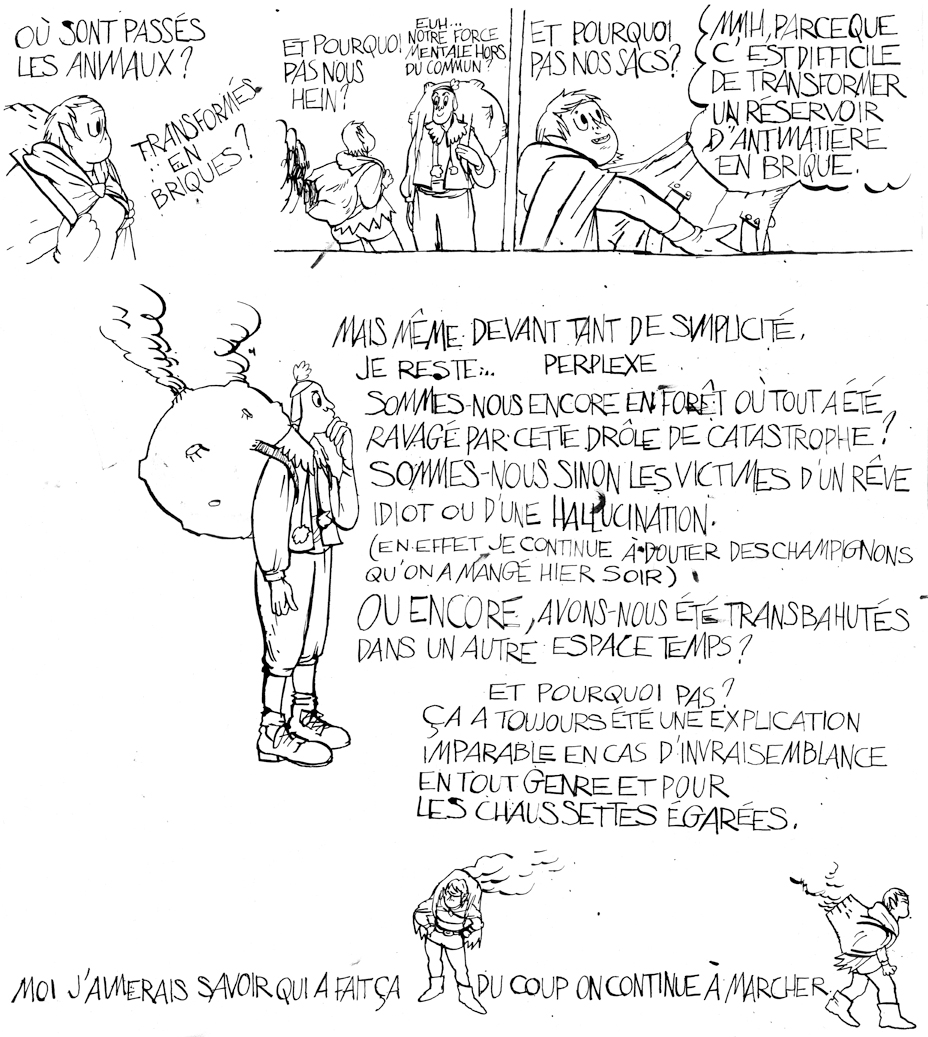 OÙ SONT PASSÉS
LES ANIMAUX?
TRANSFORMÉS
EN
BRIQUES?
ET POURQUOI
PAS NOUS
HEIN?
EUH...
NOTRE FORCE
MENTALE HORS
DU COMMUN?
ET POURQUOI
PAS NOS SACS?
MMH, PARCEQUE
C'EST DIFFICILE
DE TRANSFORMER
UN RÉSERVOIR
D'ANTIMATIÈRE
EN BRIQUE.
MAIS MÊME DEVANT TANT DE SIMPLICITÉ,
JE RESTE... PERPLEXE
SOMMES-NOUS ENCORE EN FORÊT OÙ TOUT A ÉTÉ
RAVAGÉ PAR CETTE DRÔLE DE CATASTROPHE?
SOMMES-NOUS SINON LES VICTIMES D'UN RÊVE
IDIOT OU D'UNE HALLUCINATION.
(EN EFFET, JE CONTINUE À DOUTER DES CHAMPIGNONS
QU'ON A MANGÉ HIER SOIR).
OU ENCORE, AVONS-NOUS ÉTÉ TRANSBAHUTÉS
DANS UN AUTRE ESPACE TEMPS?
ET POURQUOI PAS?
ÇA A TOUJOURS ÉTÉ UNE EXPLICATION
IMPARABLE EN CAS D'INVRAISEMBLANCE
EN TOUT GENRE ET POUR
LES CHAUSSETTES ÉGARÉES.
MOI J'AIMERAIS SAVOIR QUI A FAIT ÇA
DU COUP ON CONTINUE À MARCHER.